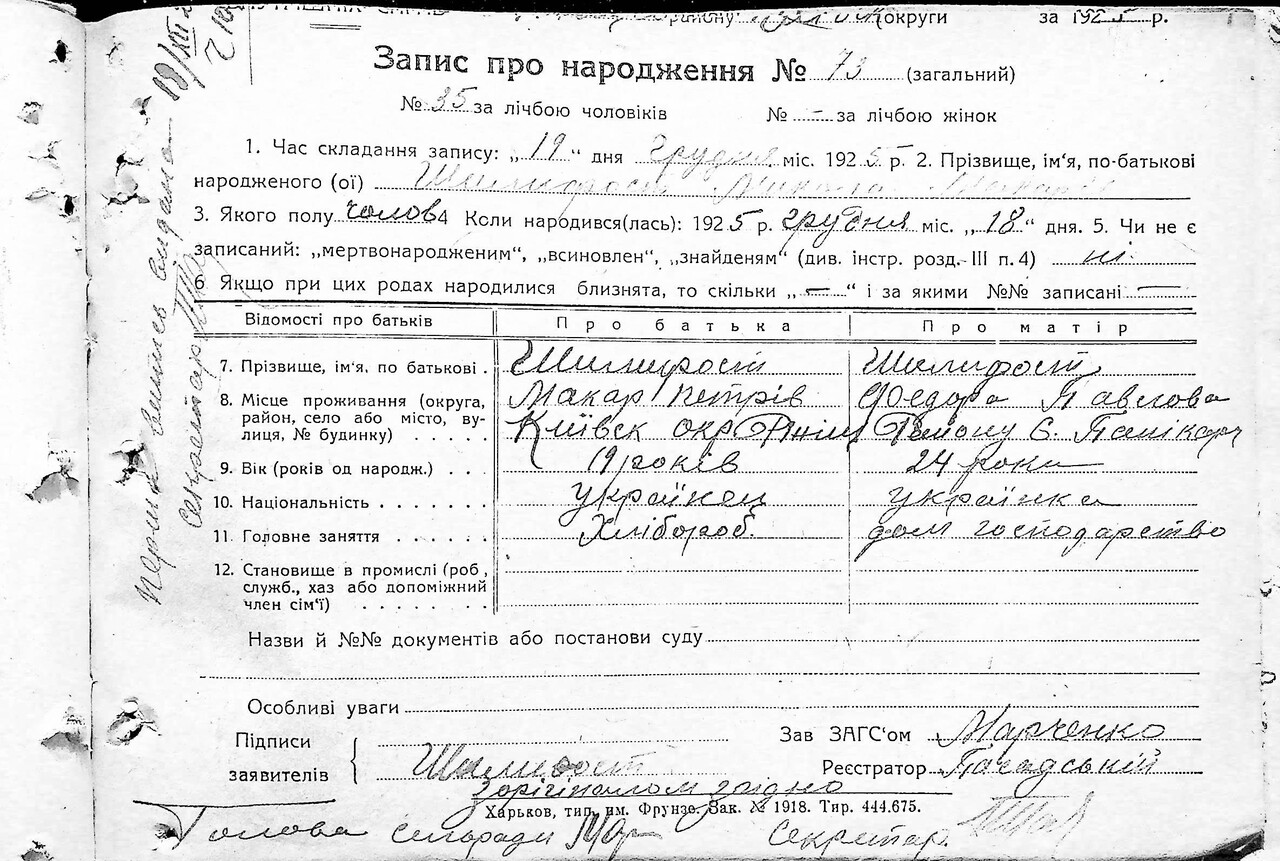 округи за 1925 р.
Запис про народження № 73 (загальний)
№ 35 за лічбою чоловіків № – за лічбою жінок
1. Час складання запису: „19“ дня грудня міс. 1925 р. 2. Прізвище, ім'я, по-батькові
народженого (ої) Шилифост Микола
3. Якого полу чолов 4 Коли народився(лась): 1925 р. грудня міс. „18“ дня. 5. Чи не є
записаний: „мертвонародженим“, „всиновлен“, „знайденям“ (див. інстр. розд. III п. 4) ні.
6 Якщо при цих родах народилися близнята, то скільки „—“ і за якими №№ записані —
Відомості про батьків Про батька Про матір
7. Прізвище, ім'я, по батькові . Шилифост Шилифост
8. Місце проживання (округа, Макар Петрів Федора Павлова
район, село або місто, ву-
лиця, № будинку) . . . . . Київск окр Району с.
9. Вік (років од народж.) . . . 19 років 24 роки
10. Національність . . . . . . . українец українка
11. Головне заняття . . . . . . Хлібороб. дом господарство
12. Становище в промислі (роб.,
служб., хаз або допоміжний
член сім'ї) . . . . . . . .
Назви й №№ документів або постанови суду
Особливі уваги
Підписи Зав ЗАГС'ом Марченко
заявителів Шилифост Реєстратор
З орігіналом згідно
Харьков, тип. им. Фрунзе. Зак. № 1918. Тир. 444.675.
Голова сельради Секретар.
видано 19/XII
Секретар